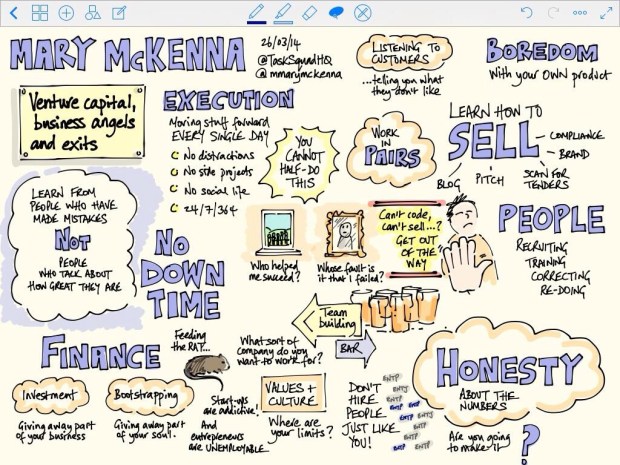 MARY McKENNA
26/03/14
@TaskSquadHQ
@mmarymckenna
LISTENING TO
CUSTOMERS
...telling you what
they don't like
BOREDOM
With your OWN product
Venture capital,
business angels
and exits
EXECUTION
Moving stuff forward
EVERY SINGLE DAY
No distractions
No side projects
No social life
24/7/364
YOU
CANNOT
HALF-DO
THIS
WORK
IN
PAIRS
LEARN HOW TO
SELL
COMPLIANCE
BRAND
SCAN FOR
TENDERS
PITCH
BLOG
LEARN FROM
PEOPLE WHO HAVE
MADE MISTAKES
NOT
PEOPLE
WHO TALK ABOUT
HOW GREAT THEY ARE
NO
DOWN
TIME
Who helped
me succeed?
Whose fault is
it that I failed?
Can't code,
can't sell...?
GET OUT
OF THE
WAY
PEOPLE
RECRUITING
TRAINING
CORRECTING
RE-DOING
Team
building
BAR
FINANCE
Feeding
the RAT...
Investment
Giving away part
of your business
Bootstrapping
Giving away part
of your soul.
Start-ups
are addictive!
And
entrepreneurs
are UNEMPLOYABLE
What sort of
company do you
want to work for?
VALUES +
CULTURE
Where are
your limits?
DON'T
HIRE
PEOPLE
JUST LIKE
YOU!
ENTP
ENTP
ENTP
ENTJ
ENTP
ENTP
ENTP
ENTP
ENTP
ENTP
HONESTY
ABOUT THE
NUMBERS
Are you going
to make it
?